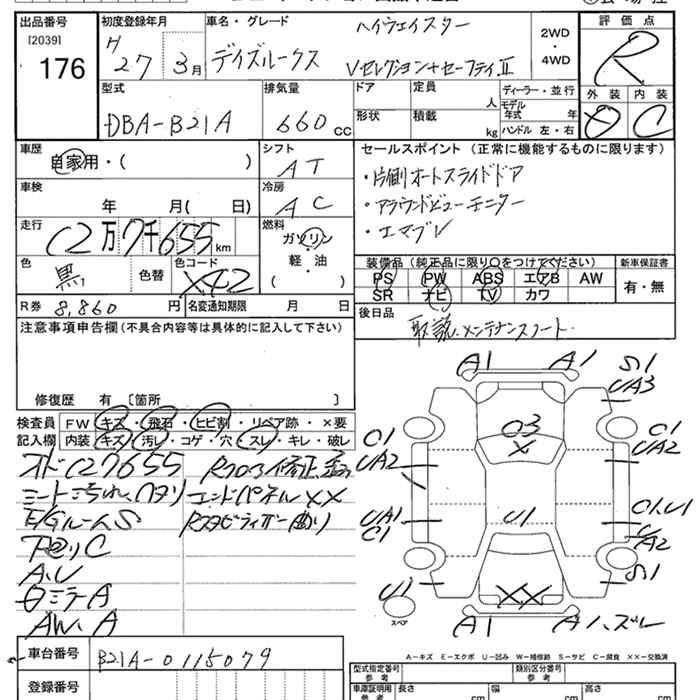 出品番号
[2039]
176
初度登録年月
H 27 年 3月
車名・グレード
デイズルークス
ハイウェイスター
Vセレクション+セーフティⅡ
2WD
・
4WD
評価点
R
外装 内装
D C
型式
DBA-B21A
排気量
660 cc
ドア
形状
定員
人
積載
kg
ディーラー・並行
モデル年式 年
ハンドル 左・右
車歴
自家用・( )
シフト
AT
車検
年 月( 日)
冷房
AC
走行
C2万7千655km
燃料
ガソリン
軽・油
( )
色
黒
色替
色コード
X42
R券 8,860 円
名変通知期限 月 日
セールスポイント(正常に機能するものに限ります)
・片側オートスライドドア
・アラウンドビューモニター
・エマブレ
装備品(純正品に限り○をつけてください)
PS PW ABS エアB AW
SR ナビ TV カワ
新車保証書
有・無
後日品
取説、メンテナンスノート.
注意事項申告欄(不具合内容等は具体的に記入して下さい)
修復歴 有〔箇所 〕
検査員記入欄
FW キズ・飛石・ヒビ割・リペア跡・×要
内装 キズ・汚れ・コゲ・穴・スレ・キレ・破レ
オドC27655
シート汚れ、ヘタリ エンドパネルXX
E/GルームS Rスタビライザー曲り
A.U
AW.A
A1 A1
S1
UA3
O3
X
O1
UA2
O1
UA2
UA1
C1
U1
O1.U1
U
A2
U1
S1
XX
スペア
A1 A1ハズレ
A－キズ E－エクボ U－凹み W－補修跡 S－サビ C－腐食 ××－交換済
車台番号
B21A-0115079
登録番号
型式指定番号
参考
類別区分番号
参考
車庫証明用
参考
長さ cm
幅 cm
高さ cm